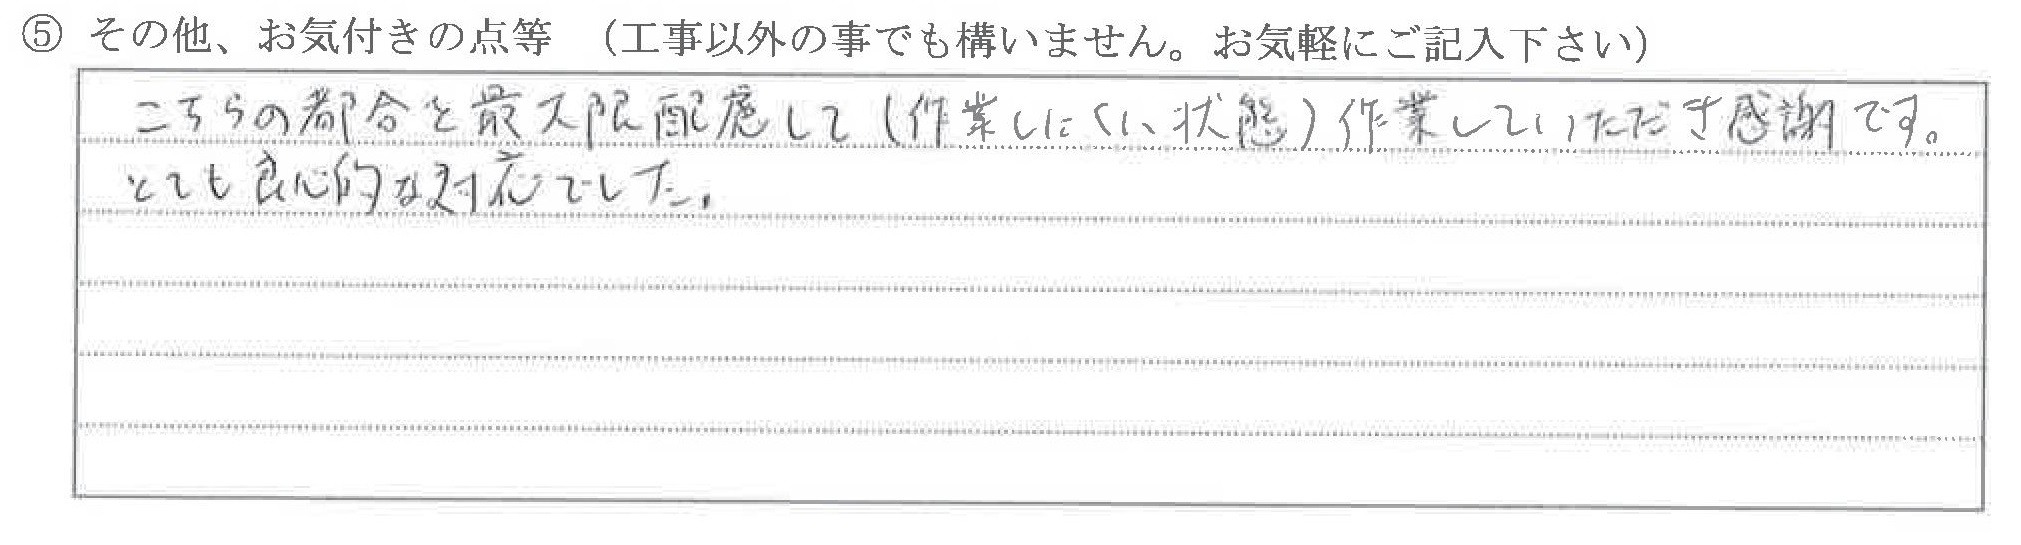 ⑤ その他、お気付きの点等 （工事以外の事でも構いません。お気軽にご記入下さい）
こちらの都合を最大限配慮して（作業しにくい状態）作業していただき感謝です。
とても良心的な対応でした。